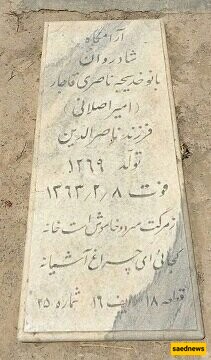 آرامگاه
شادروان
بانو خدیجه ناصری قاجار
(امیراصلانی)
فرزند ناصرالدین
تولد ۱۲۶۹
فوت ۱۳۶۳٫۲٫۸
ز مرگت سرد و خاموش است خانه
کجائی ای چراغ آشیانه
قطعه ۱۸ الف ۱۶ شماره ۲۵
saednews